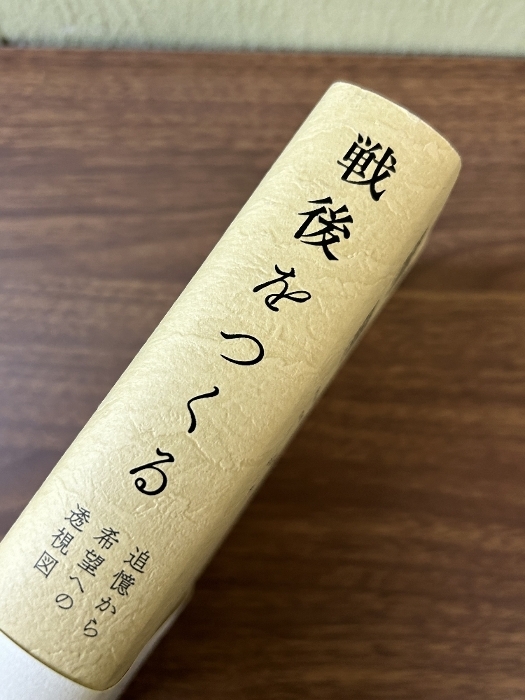 戦後をつくる
追憶から
希望への
透視図